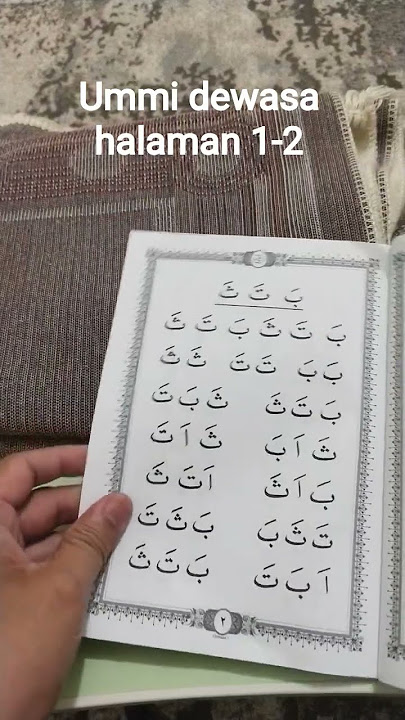 Ummi dewasa
halaman 1-2
بَ تَ ثَ
بَ تَ ثَ بَ تَ ثَ
بَ بَ تَ تَ ثَ ثَ
بَ تَ ثَ ثَ بَ تَ
ثَ اَ بَ ثَ اَ تَ
بَ اَ ثَ اَ تَ ثَ
تَ ثَ بَ بَ ثَ تَ
اَ بَ تَ بَ تَ ثَ
٢